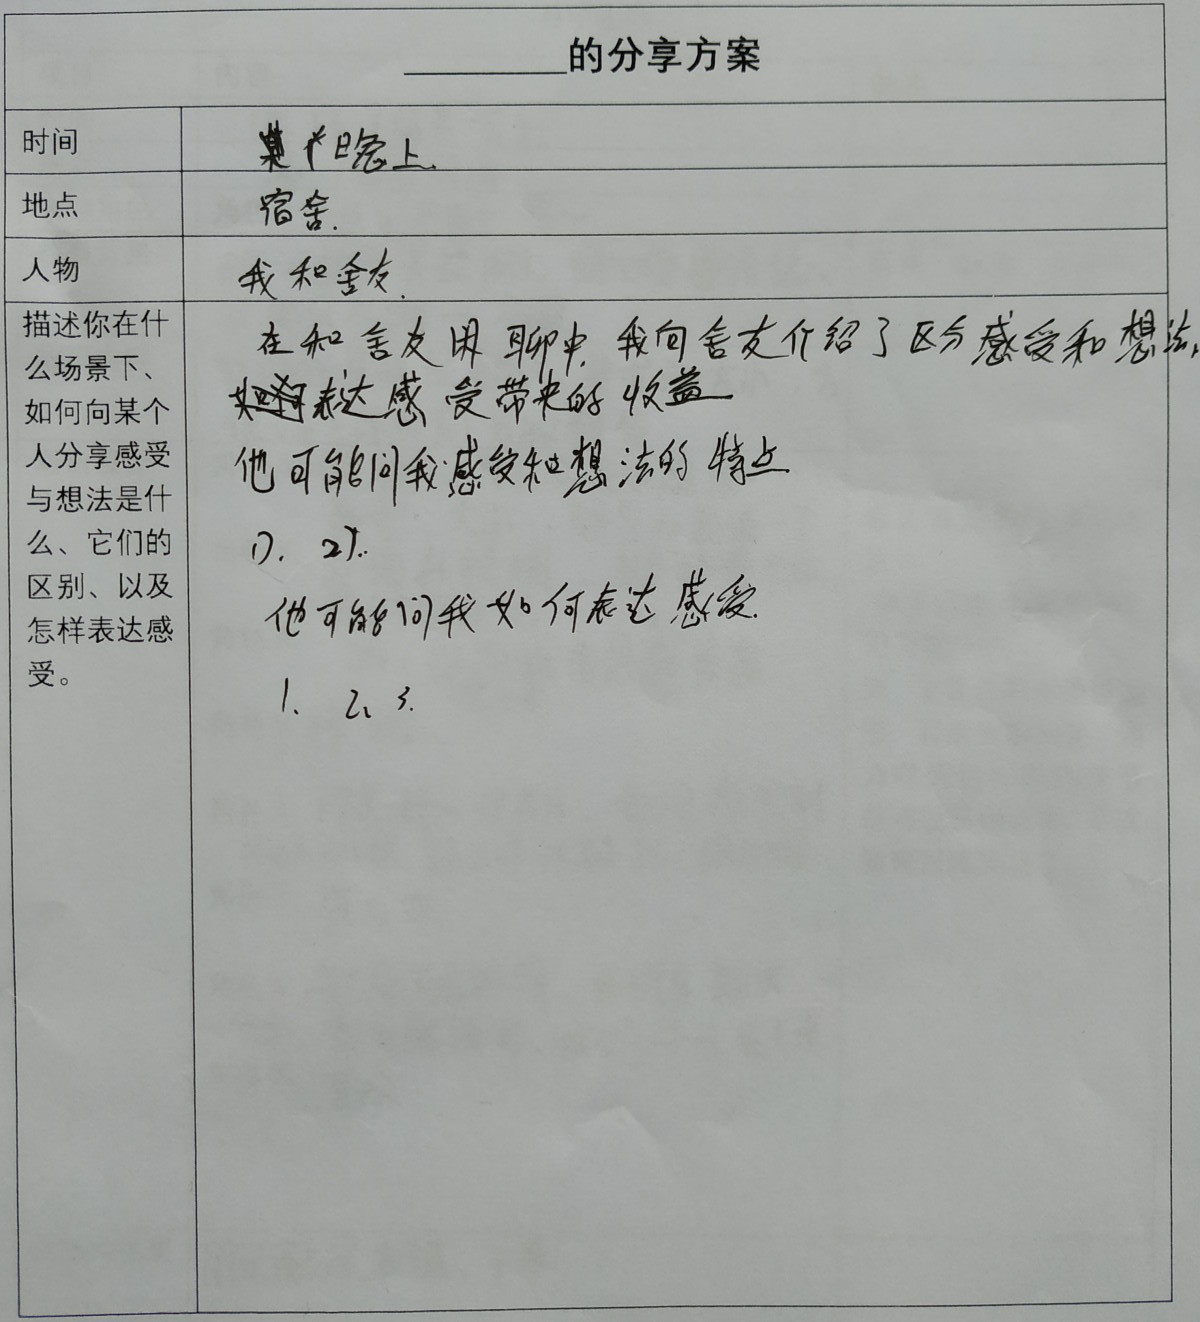 的分享方案
时间
某个日晚上.
地点
宿舍.
人物
我和舍友.
描述你在什
么场景下、
如何向某个
人分享感受
与想法是什
么、它们的
区别、以及
怎样表达感
受。
在和舍友闲聊中,我向舍友介绍了区分感受和想法,
表达感受带来的收益
他可能问我感受和想法的特点
1). 2).
他可能问我如何表达感受.
1. 2. 3.